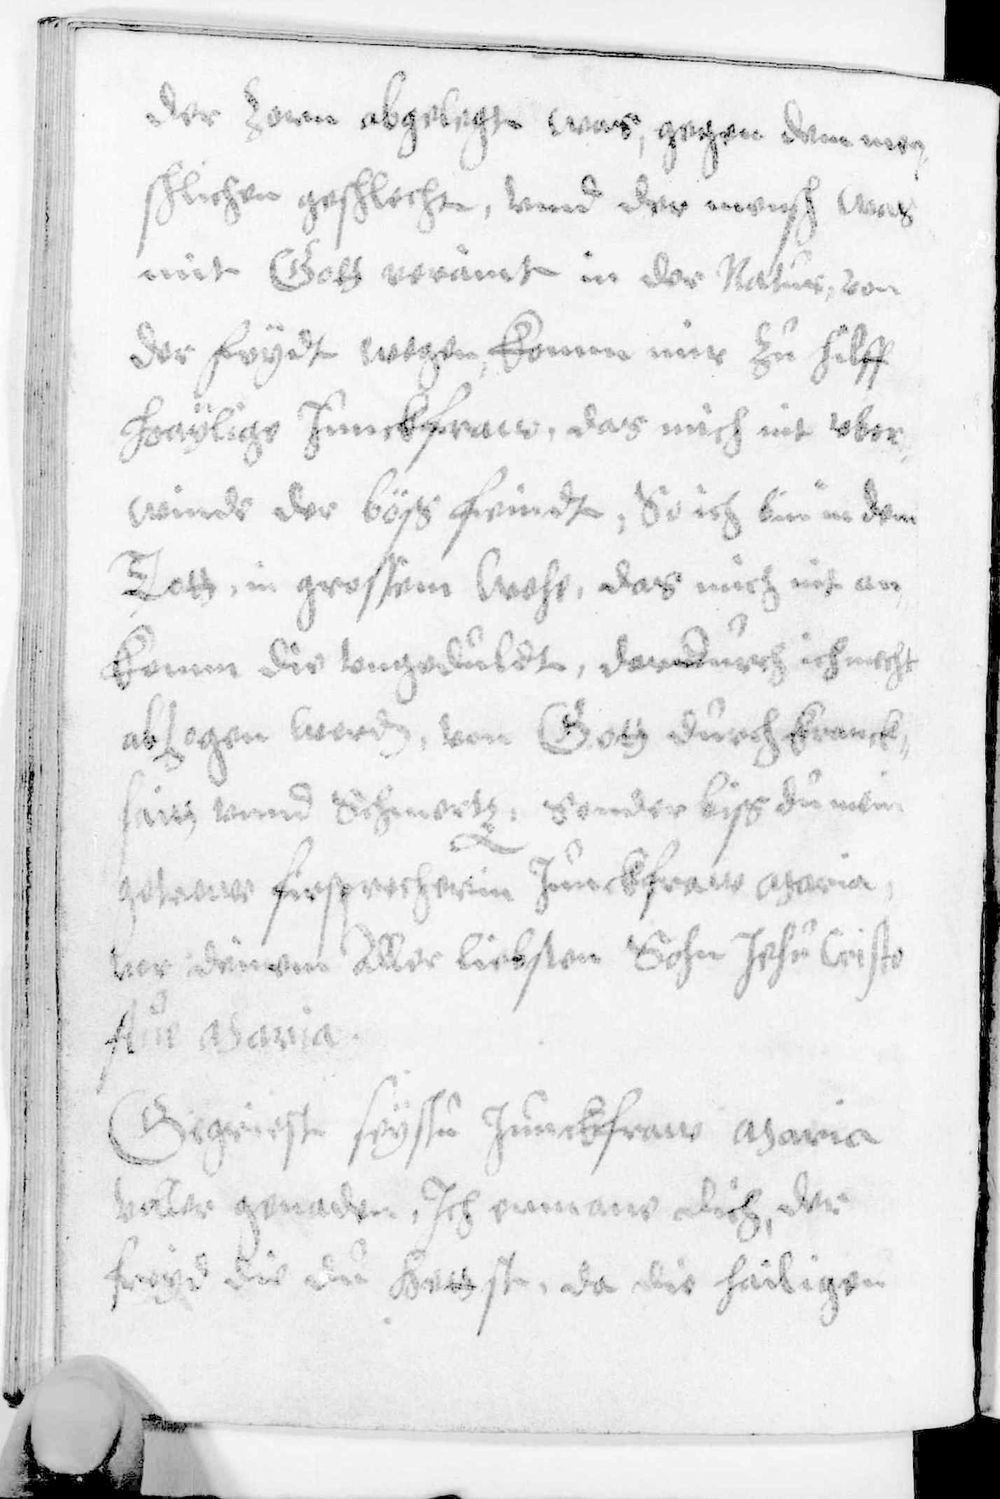 der Zorn abgelegt was, gegen dem men,
schlichen geschlecht, vnnd der mensch was
mit Gott veräint in der Natur, von
der freÿdt wegen, Komm mir Zu hilff
heaÿlige Junckfraw, das mich nit vber,
winde der böss feindt, So ich bin in dem
Tott, in grossem Wehe, das mich nit an,
komm die vngeduldt, dardurch ich mecht
abzogen werdn, von Gott durch kranck,
hait vnnd Schmertz, Sonder biss du mein
getrewe firsprecherin Junckfraw Maria,
vor deinem Aller liebsten Sohn Jesu Cristo
Aue Maria.
Gegriest seÿstu Junckfraw Maria
voller genaden, Ich ermane dich, der
freyd die du hettest, da die hailigen